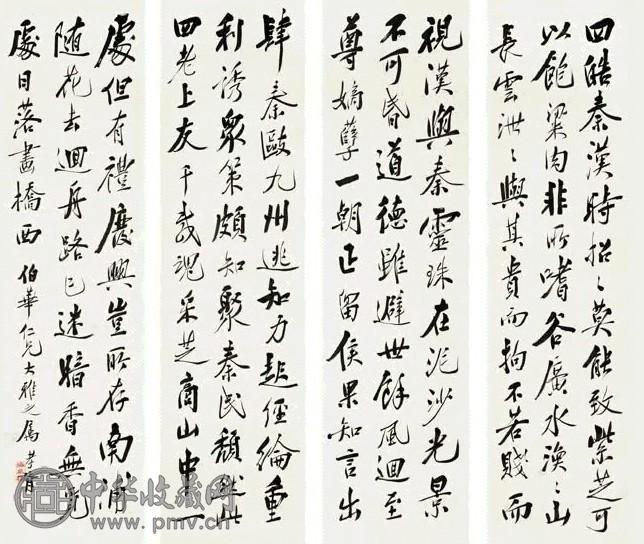 四皓秦漢時招〻莫能致紫芝可
以飽粱肉非所嗜谷廣水渙〻山
長雲泄〻與其貴而拘不若賤而
肆秦毆九州逃知力起經綸重
利誘眾策頗知聚秦民頹然此
四老上友千載魂采芝商山中一
視漢與秦靈珠在泥沙光景
不可昏道德雖避世餘風迴至
尊嫡孽一朝正留侯果知言出
處但有禮廢興豈所存南浦
隨花去迴舟路已迷暗香無覓
處日落畫橋西 伯華仁兄大雅之屬 孝胥
中华收藏网
www.pmv.cn